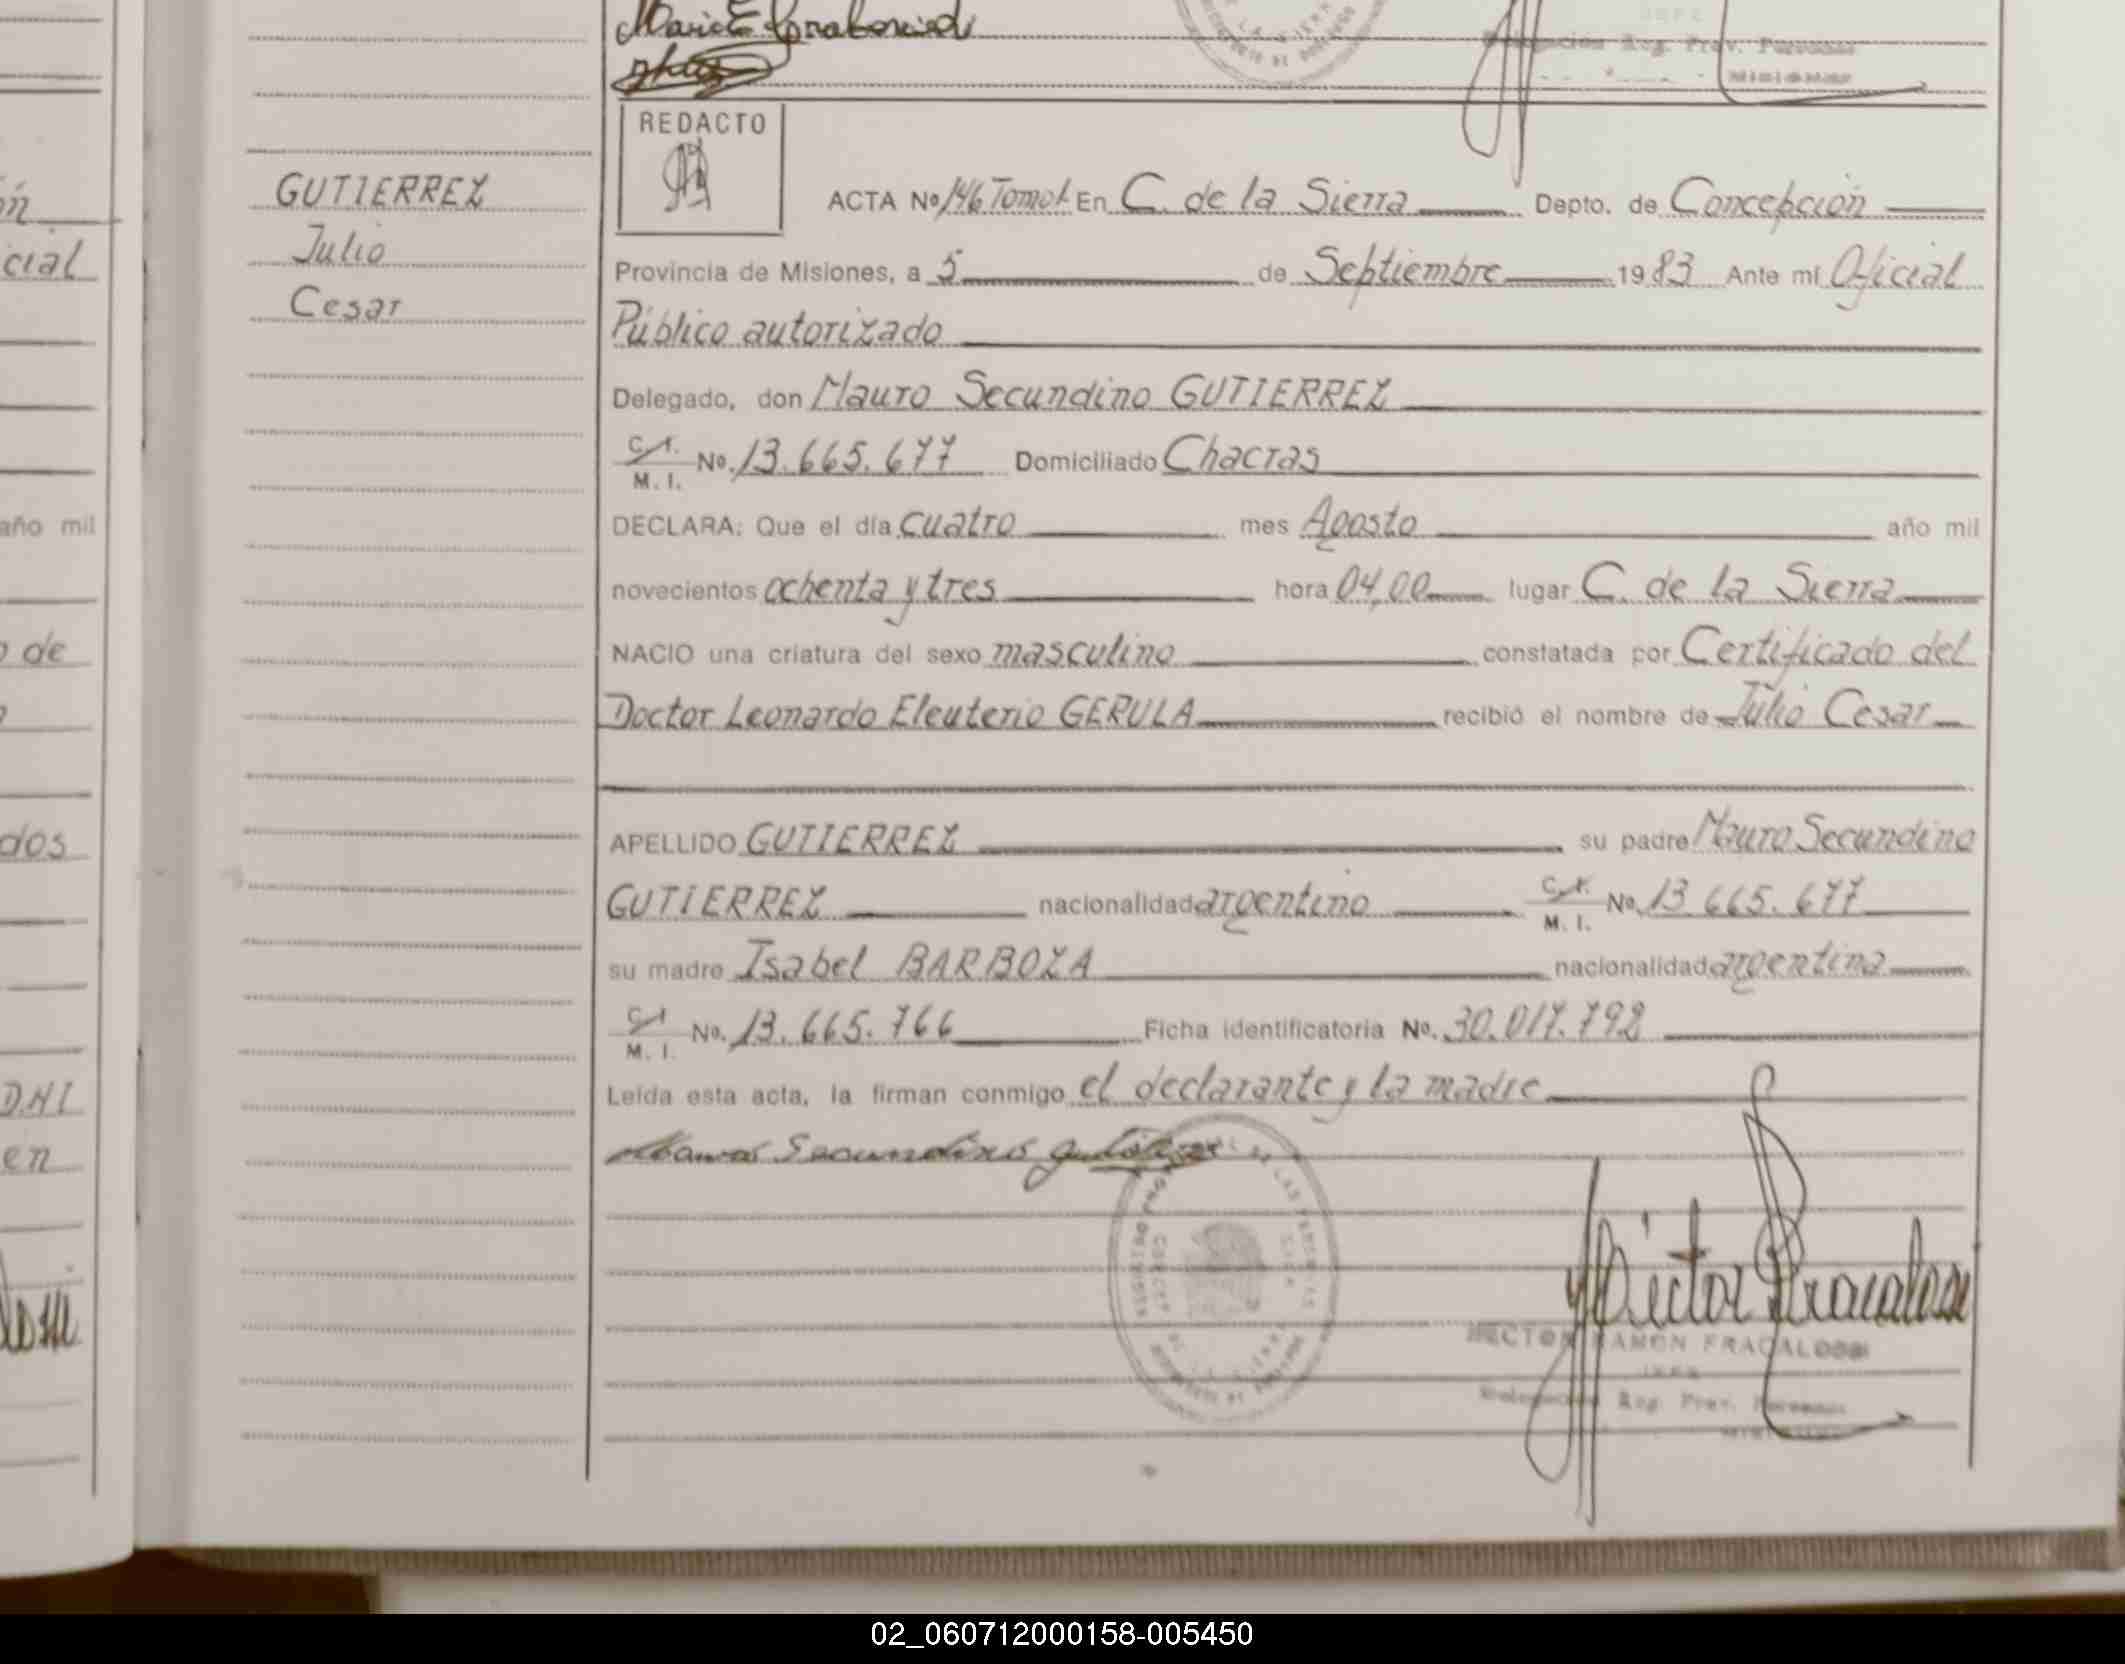 Delegación Reg. Prov. Personas
REDACTO
GUTIERREZ
Julio
Cesar
ACTA No 146 Tomo I En C. de la Sierra Depto. de Concepción
Provincia de Misiones, a 5 de Septiembre 1983 Ante mí Oficial
Público autorizado
Delegado, don Mauro Secundino GUTIERREZ
C. I.
M. I. No. 13.665.677 Domiciliado Chacras
DECLARA: Que el día cuatro mes Agosto año mil
novecientos ochenta y tres hora 04,00 lugar C. de la Sierra
NACIO una criatura del sexo masculino constatada por Certificado del
Doctor Leonardo Eleuterio GERULA recibió el nombre de Julio Cesar
APELLIDO GUTIERREZ su padre Mauro Secundino
GUTIERREZ nacionalidad argentino C. I. M. I. No. 13.665.677
su madre Isabel BARBOZA nacionalidad argentina
C. I.
M. I. No. 13.665.766 Ficha identificatoria No. 30.017.792
Leída esta acta, la firman conmigo el declarante y la madre
Mauro Secundino Gutierrez
Hector Fracalossi
HECTOR RAMON FRACALOSSI
JEFE
Delegación Reg. Prov. Personas
cial
año mil
de
dos
DNI
en
02_060712000158-005450